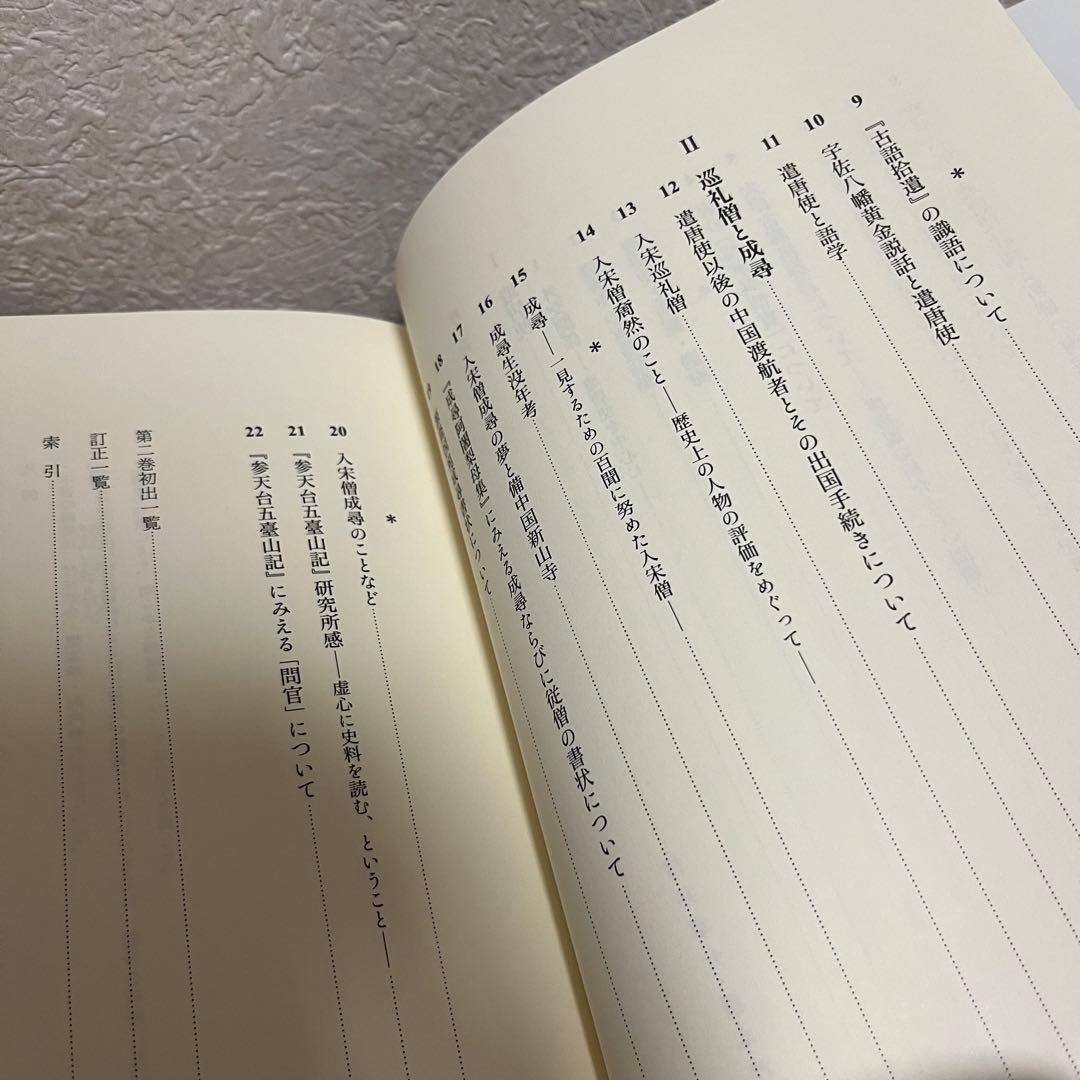 *
9 『古語拾遺』の識語について
10 宇佐八幡黄金説話と遣唐使
11 遣唐使と語学
II 巡礼僧と成尋
12 遣唐使以後の中国渡航者とその出国手続きについて
13 入宋巡礼僧
14 入宋僧奝然のこと——歴史上の人物の評価をめぐって——
*
15 成尋——一見するための百聞に努めた入宋僧——
16 成尋生没年考
17 入宋僧成尋の夢と備中国新山寺
18 『成尋阿闍梨母集』にみえる成尋ならびに従僧の書状について
書状について
*
20 入宋僧成尋のことなど
21 『参天台五臺山記』研究所感——虚心に史料を読む、ということ——
22 『参天台五臺山記』にみえる「問官」について
第二巻初出一覧
訂正一覧
索引